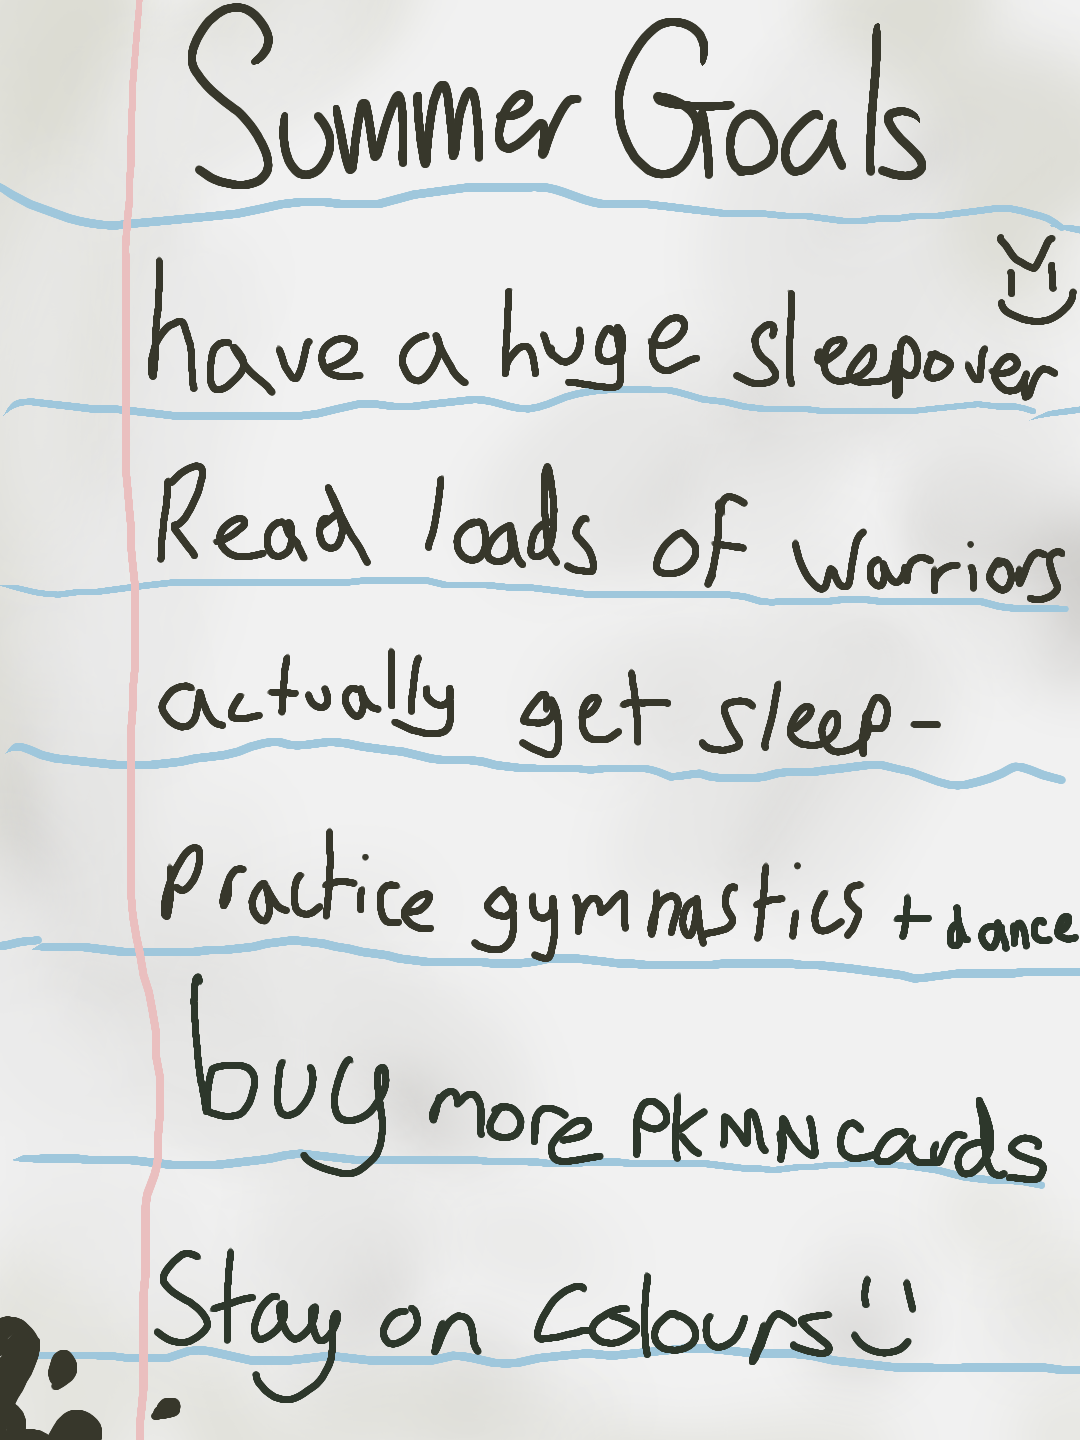 Summer Goals
have a huge sleepover
Read loads of warriors
actually get sleep-
Practice gymnastics + dance
buy more PKMN cards
Stay on Colours